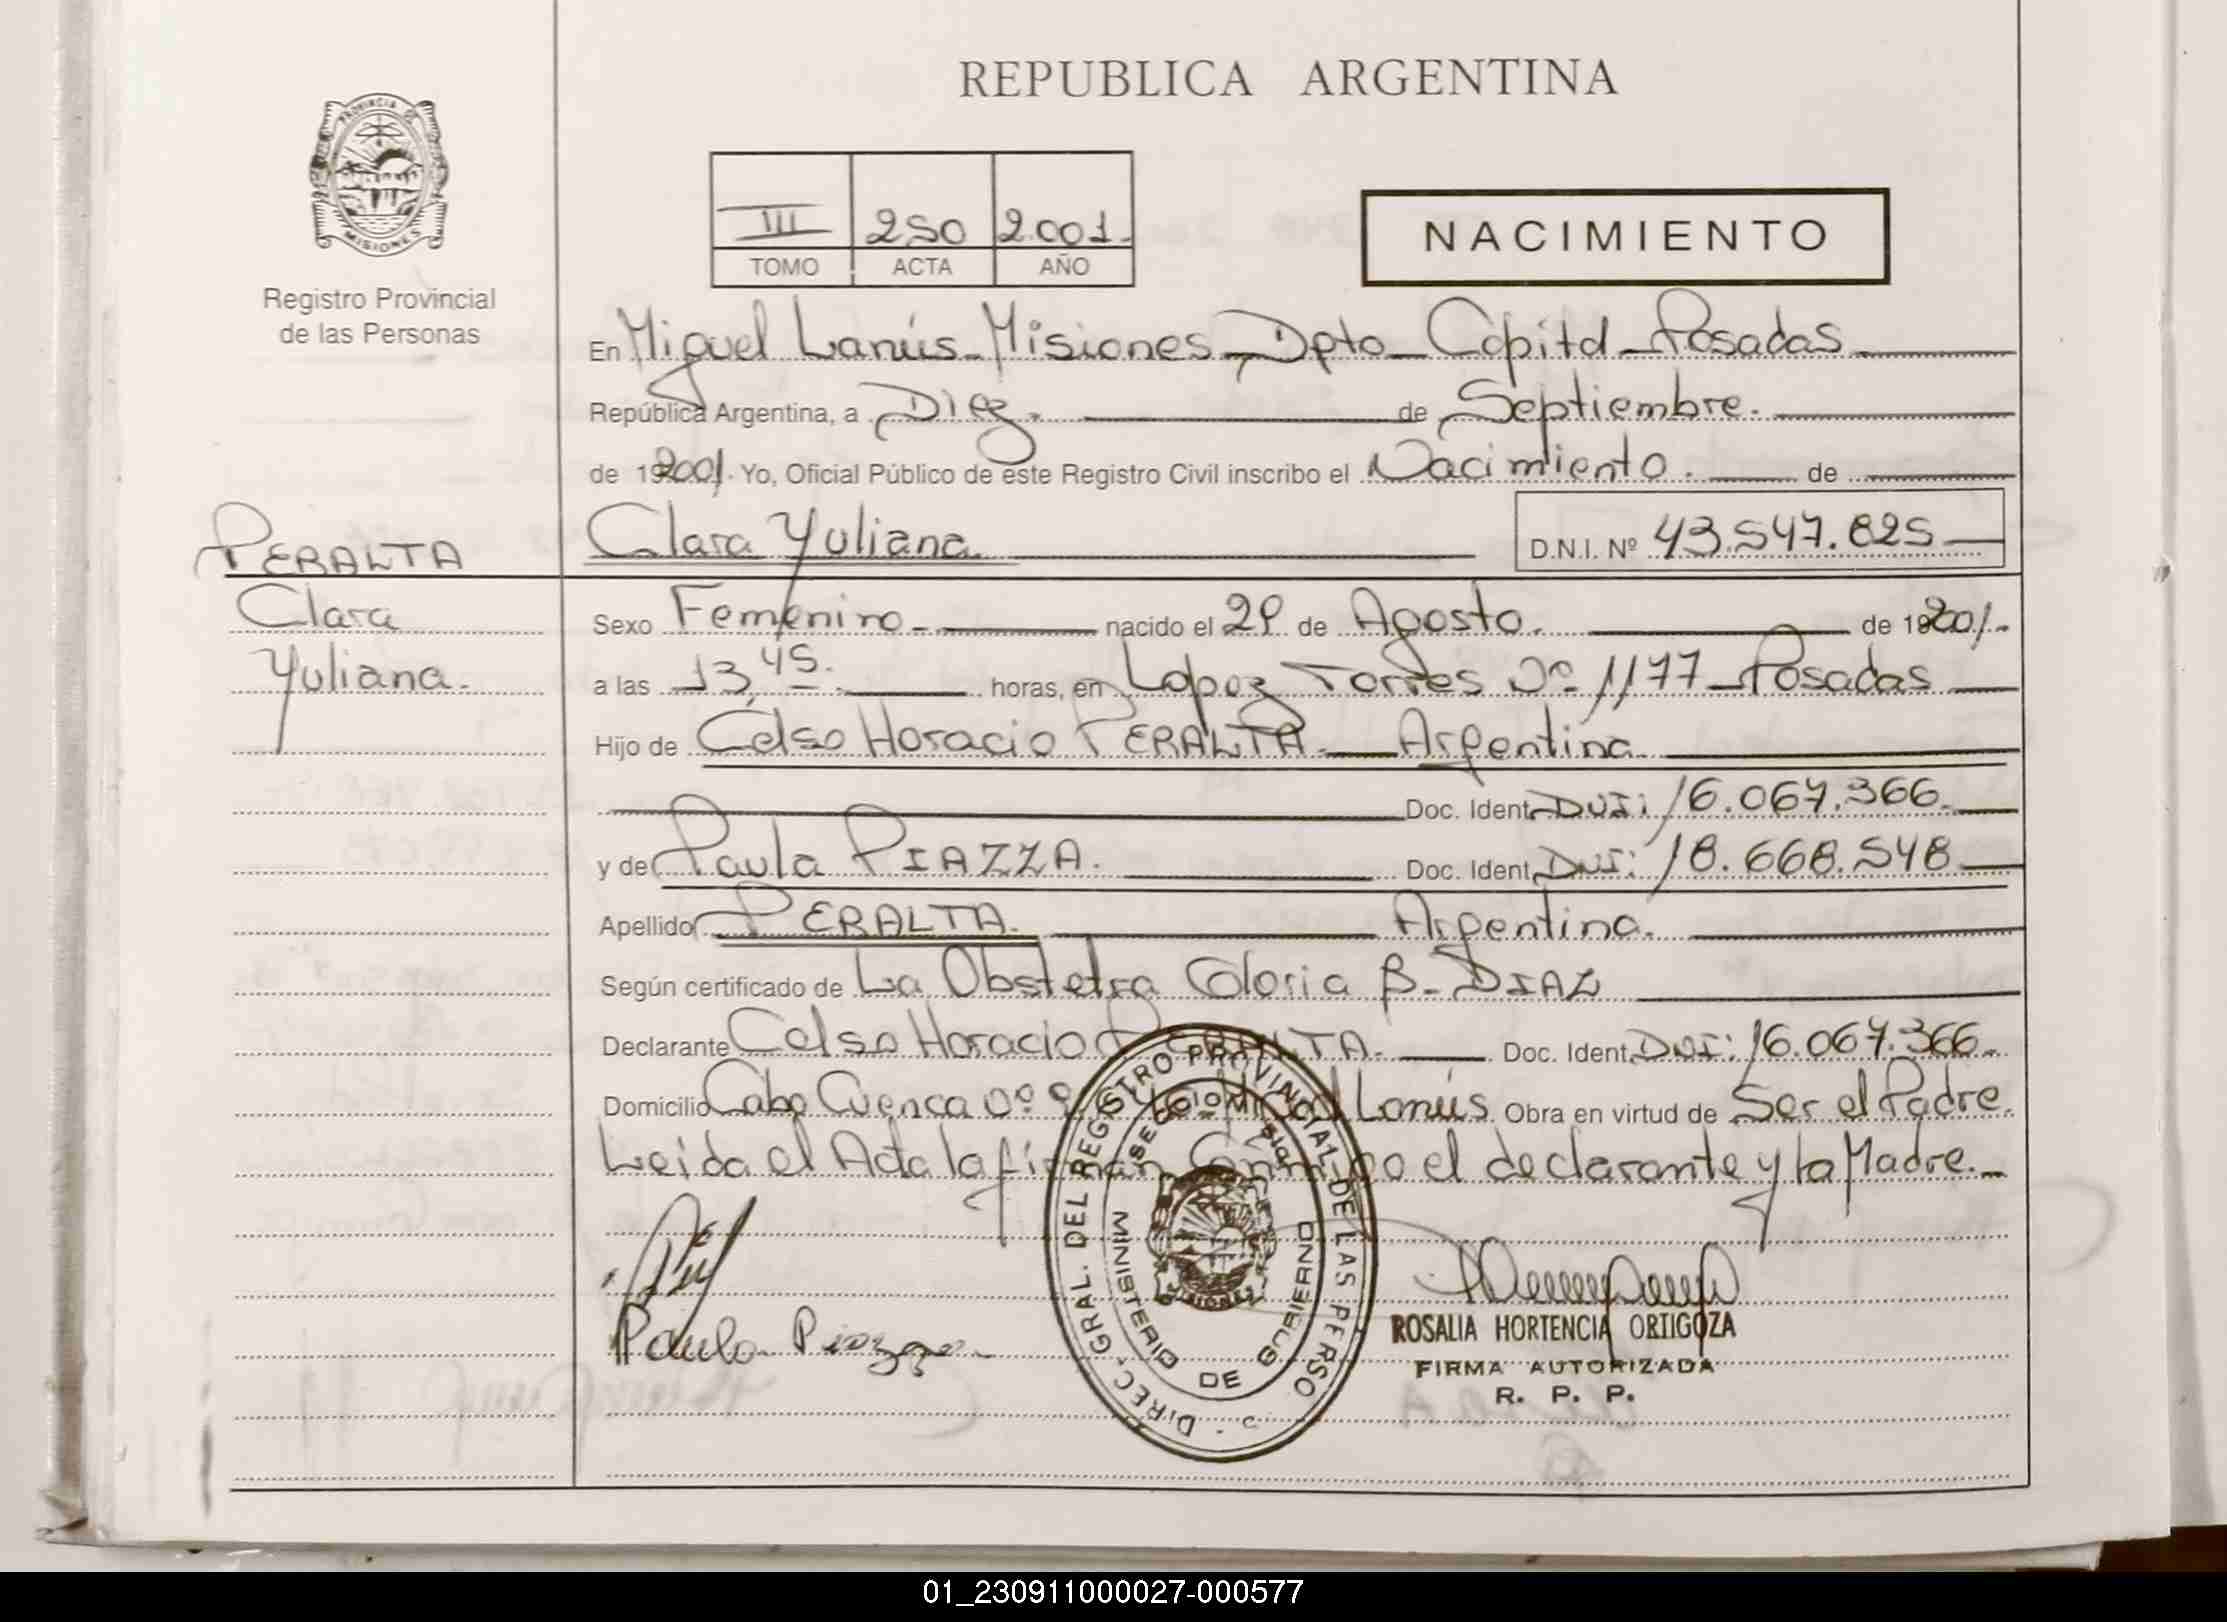 REPUBLICA ARGENTINA
PROVINCIA DE
MISIONES
Registro Provincial
de las Personas
III 250 2.001.
TOMO ACTA AÑO
NACIMIENTO
En Miguel Lanús - Misiones - Dpto - Capital - Posadas
República Argentina, a Diez. de Septiembre.
de 2001. Yo, Oficial Público de este Registro Civil inscribo el Nacimiento. de
PERALTA
Clara Yuliana. D.N.I. Nº 43.547.825
Clara
Yuliana.
Sexo Femenino - nacido el 29 de Agosto. de 2001.
a las 13,45. horas, en Lopez Torres Nº 1177 - Posadas
Hijo de Celso Horacio PERALTA. Argentina.
Doc. Ident. DNI: 16.067.366.
y de Paula PIAZZA. Doc. Ident. DNI: 18.668.548
Apellido PERALTA. Argentina.
Según certificado de La Obstetra Gloria B. DIAZ
Declarante Celso Horacio PERALTA. Doc. Ident. DNI: 16.067.366.
Domicilio Cabo Cuenca Nº Lanús. Obra en virtud de Ser el Padre.
Leida el Acta la firman Conmigo el declarante y la Madre.
Paula Piazza
DIREC. GRAL. DEL REGISTRO PROVINCIAL DE LAS PERSO
MINISTERIO DE GOBIERNO
MISIONES
ROSALIA HORTENCIA ORTIGOZA
FIRMA AUTORIZADA
R. P. P.
01_230911000027-000577